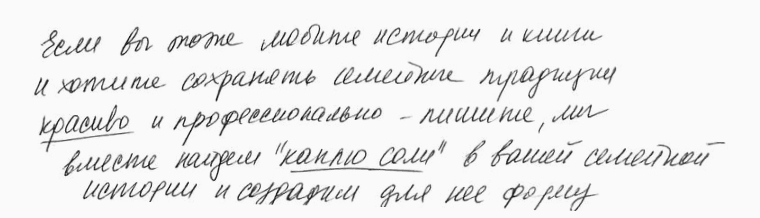 Если вы тоже любите истории и книги
и хотите сохранять семейные традиции
красиво и профессионально – пишите, мы
вместе найдем "каплю соли" в вашей семейной
истории и создадим для нее форму